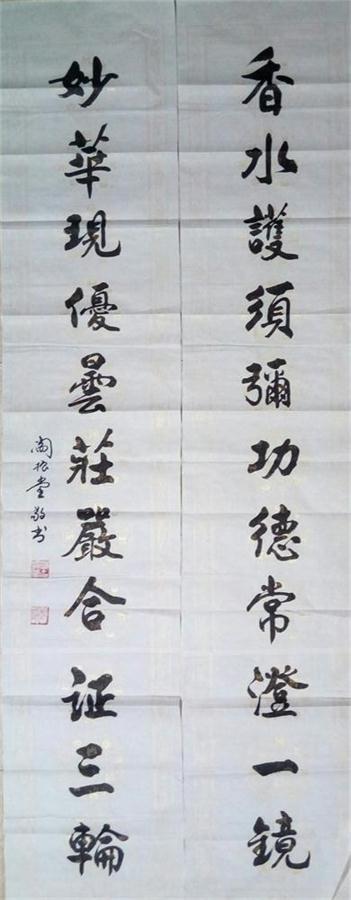 香水護須彌功德常澄一鏡
妙華現優曇莊嚴合证三輪
振堂敬书